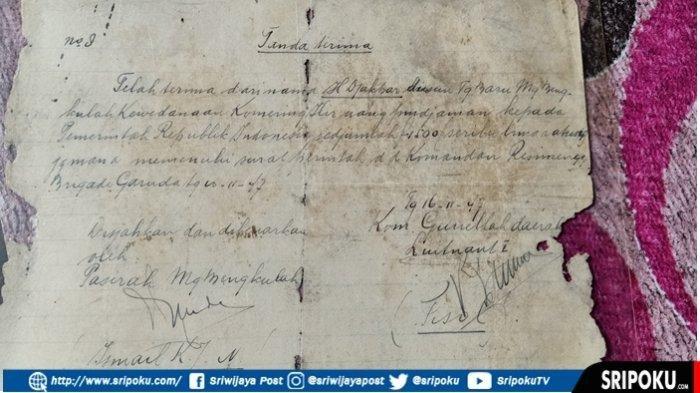 no 3
Tanda terima
Telah terima dari nama H Djakbar dusun Tg Baru Mg Beng-
kulah Kewedanaan Komering Ilir uang pindjaman kepada
Pemerintah Republik Indonesia sedjumlah 1500 seribu lima ratus
jimana memenuhi surat perintah d d Komandan Resimen
Brigade Garuda tg 11-47
Tg 16-11-47
Disjahkan dan dikuarkan
Kom Guirellah daerah
oleh
Luitnant I
Pasirah Mg Bengkulah
(Fisol)
(Ismail K. T. N
http://www.sripoku.com/ Sriwijaya Post @sriwijayapost @sripoku SripokuTV
SRIPOKU.COM